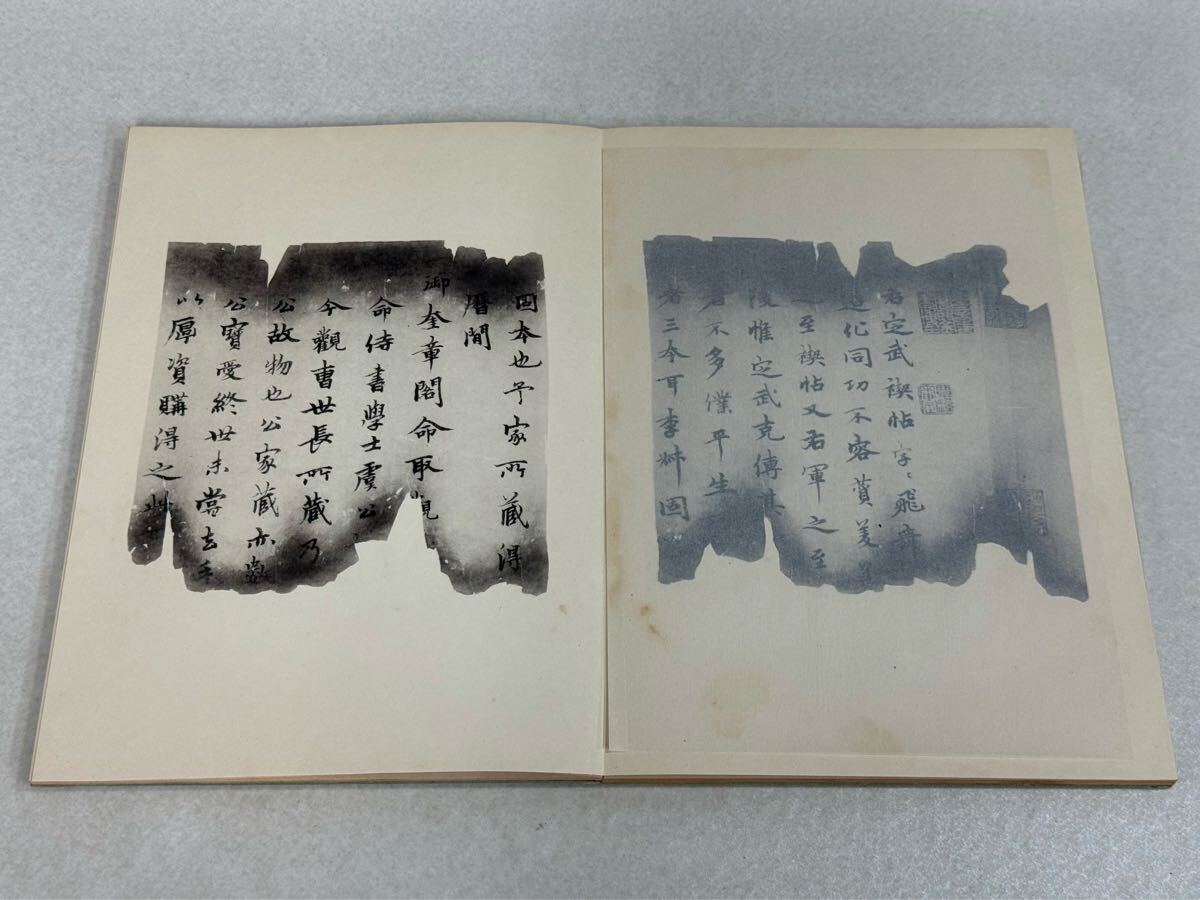 右定武禊帖字〻飛
造化同功不容賛美
至禊帖又右軍之至
陵惟定武克傳其
者不多僕平生
者三本耳李爀固
固本也予家所藏得
曆間
御奎章閣命取觀
命侍書學士虞公
今觀曹世長所藏乃
公故物也公家藏亦數
公寶愛終世未嘗去手
以厚資購得之此